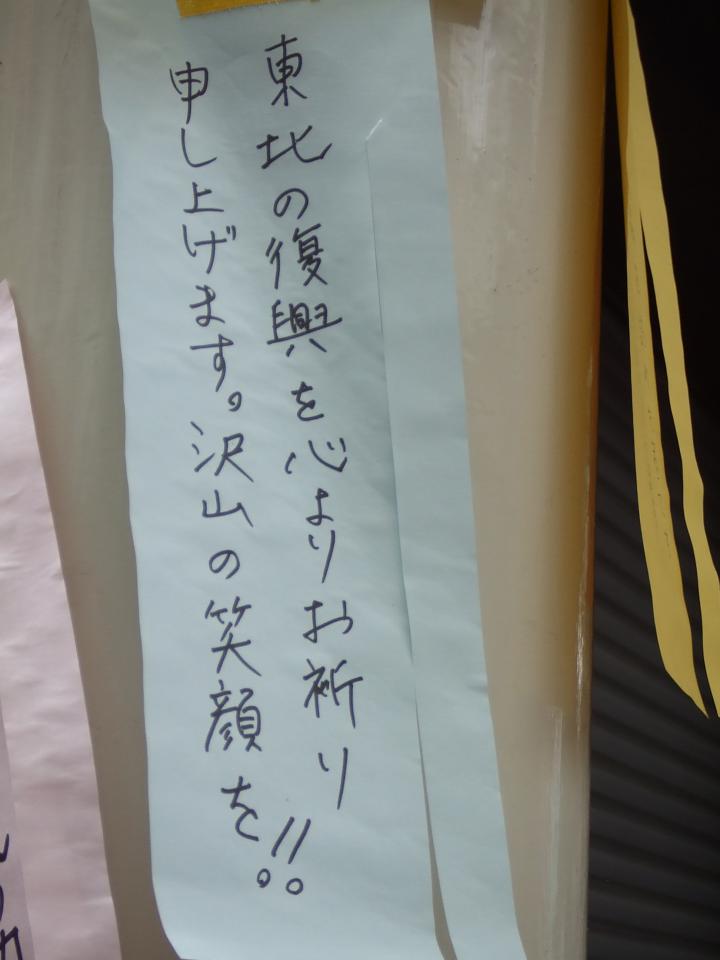 東北の復興を心よりお祈り
申し上げます。沢山の笑顔を!!